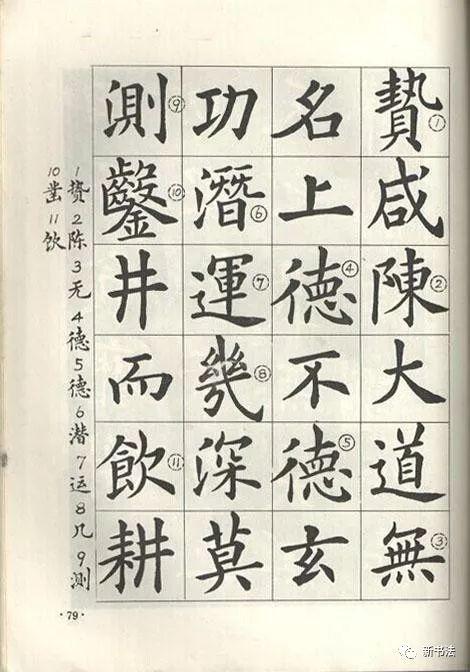 贄①咸陳②大道無③
名上德④不德⑤玄
功潛⑥運⑦幾⑧深莫
測⑨鑿⑩井而飲⑪耕
1贽 2陈 3无 4德 5德 6潜 7运 8几 9测
10凿 11饮
·79·
新书法